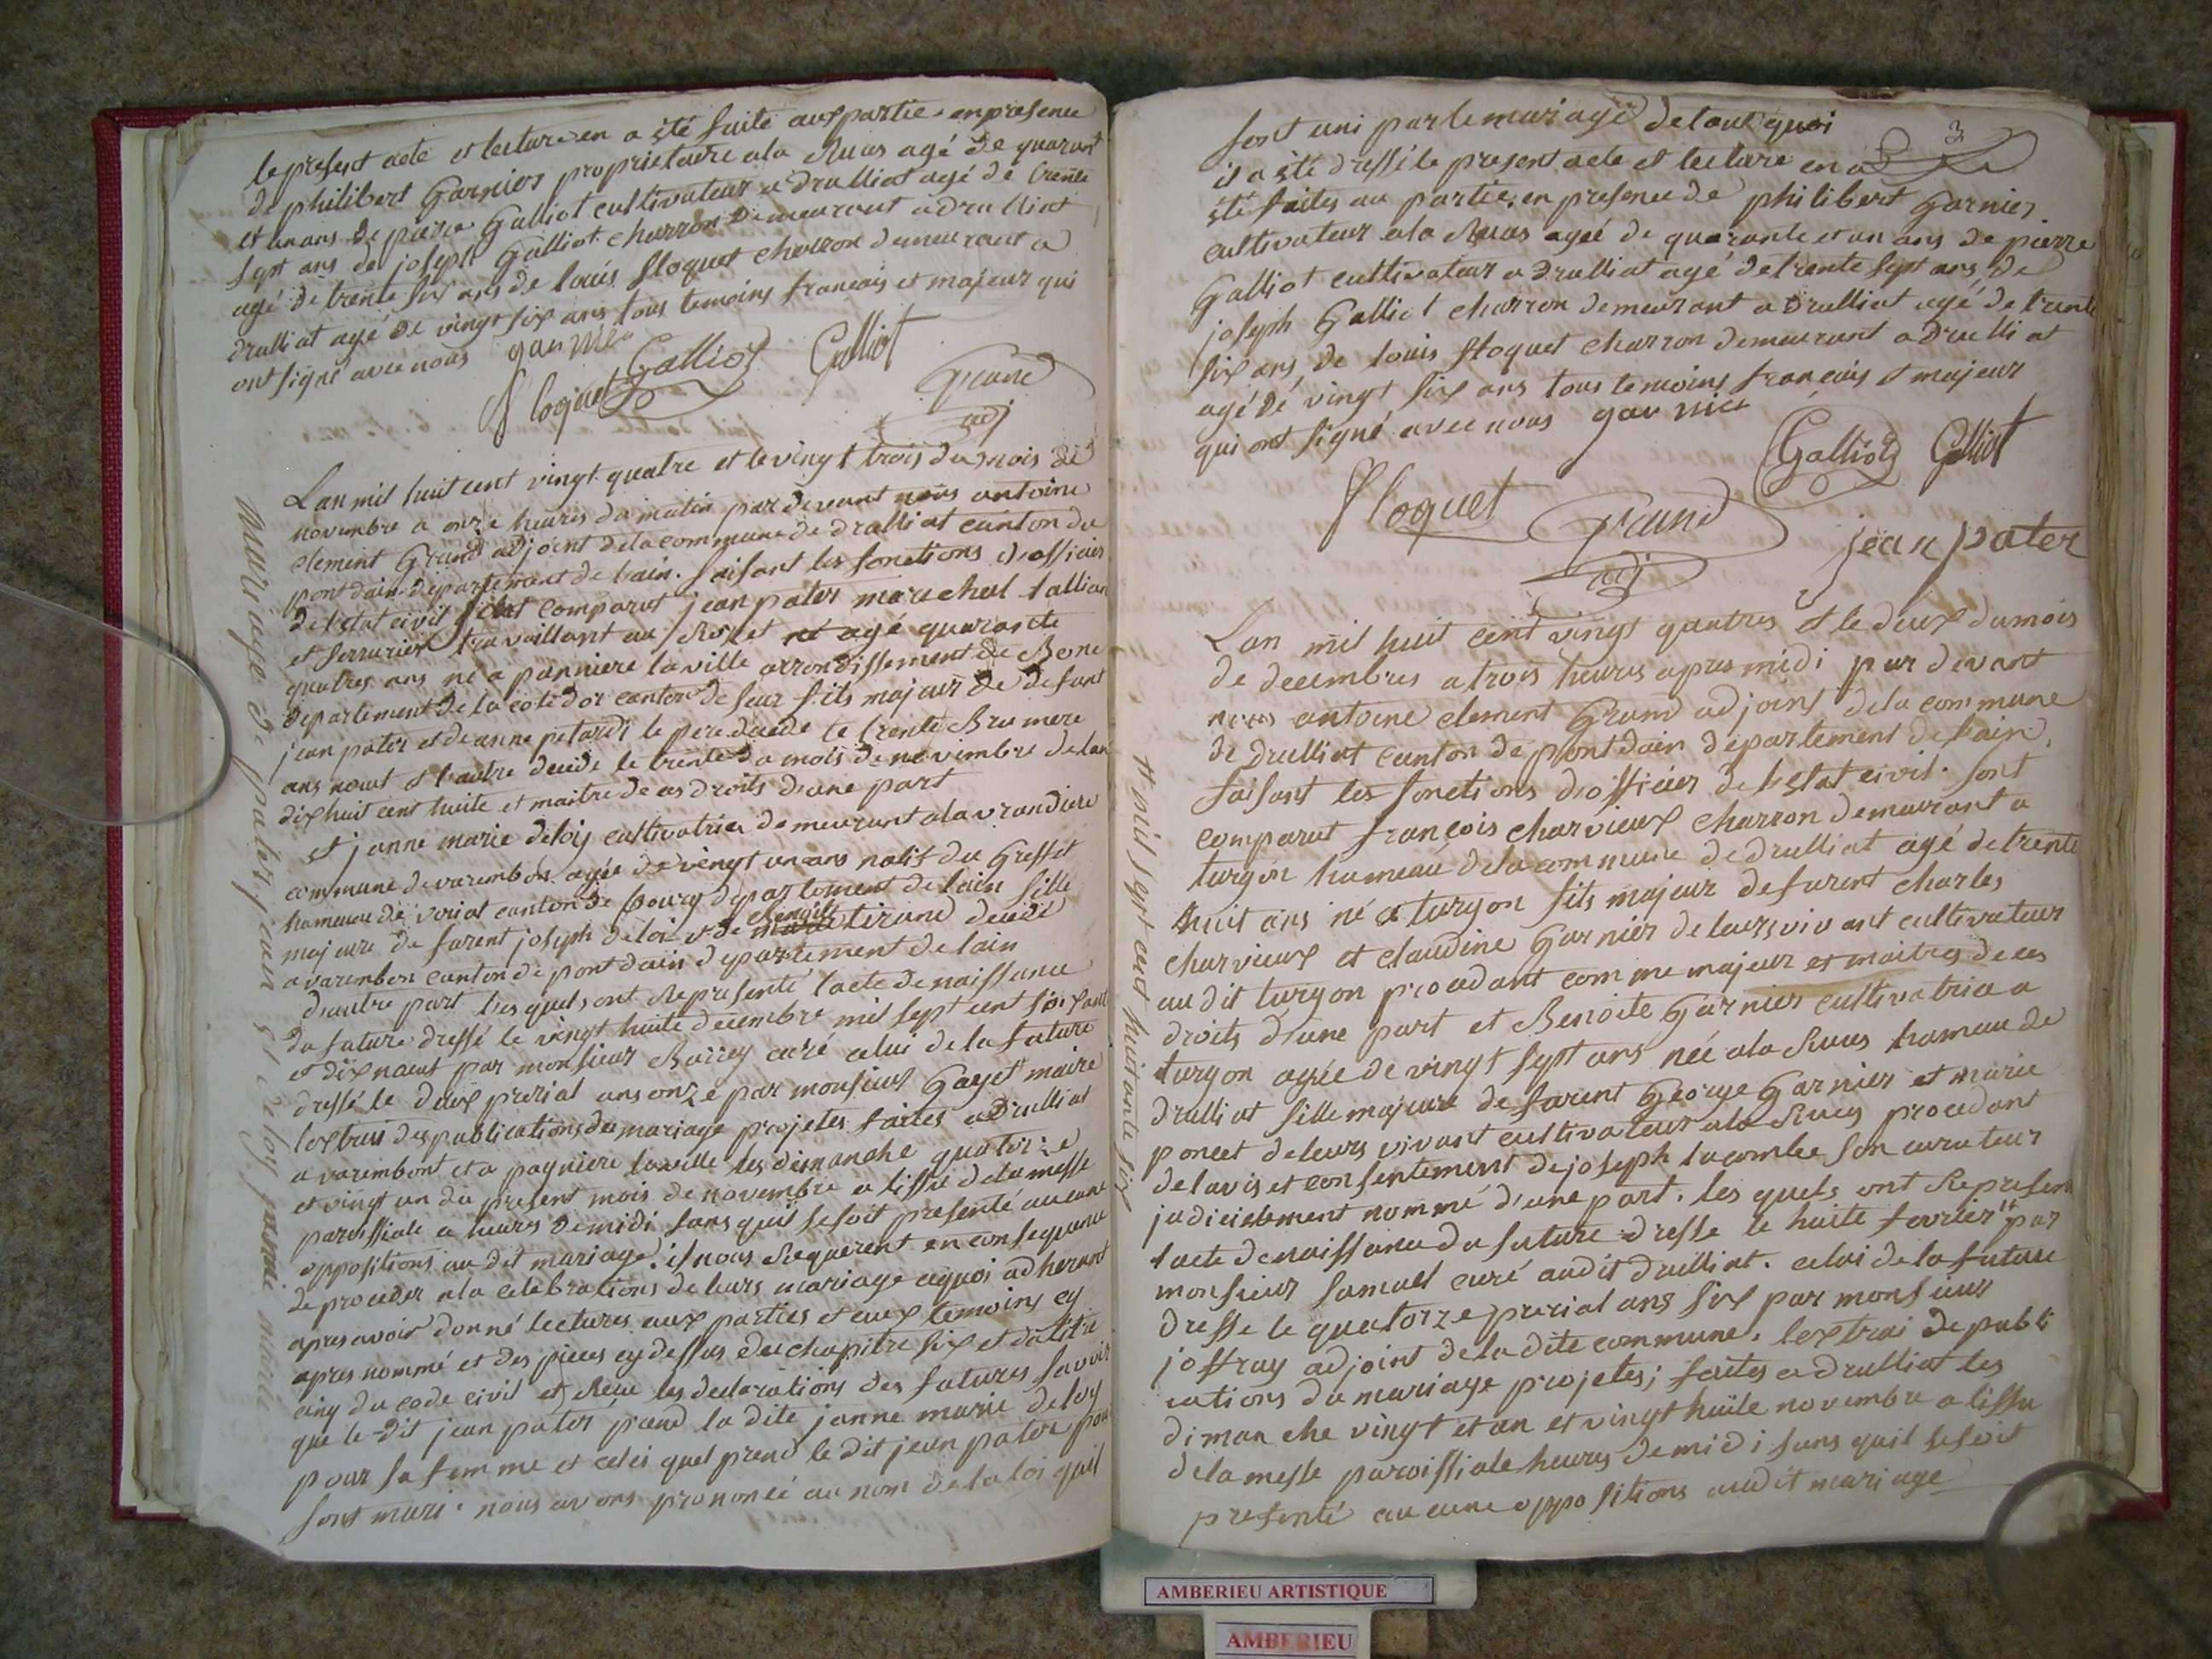 le present acte et lecture en a été faite aux partie en presence
de philibert Garnier proprietaire ala Ruas agé de quarant
et un ans de pierre Galliot cultivateur a drulliat agé de trente
sept ans de joseph Galliot charron demeurant a drulliat
agé de trente six ans de louis floquet charron demeurant a
drulliat agé de vingt six ans tous temoins francais et majeur qui
ont signé avec nous garnier
floquet Galliot Galliot Grand
adj
Lan mil huit cent vingt quatre et le vingt trois du mois de
novembre a onze heures du matin par devant nous antoine
clement Grand adjoint dela commune de drulliat canton du
pont dain departement de lain. faisant les fonctions d'officier
de l'etat civil est comparut jean pater marechal tallian
et serrurier travaillant au et agé quarante
quatres ans né a panniere laville arrondissement de Bone
departement de la cote dor canton de seur fils majeur de defunt
jean pater et de anne petardi le pere decede le trente Brumere
ans neuf et l'autre decede le trente du mois de novembre de lan
dix huit cent huite et maitre de ces droits d'une part
et janne marie deloy cultivatrice demeurant ala vrandiere
commune de varembon agée de vingt un ans natif du Greffet
hameau de viriat canton de bourg departement de lain fille
majeure de furent joseph deloi et de tirand decede
a varembon canton de pont dain departement de lain
d'autre part lesquels ont Representé lacte de naissance
du future dressé le vingt huite decembre mil sept cent soixant
et dix neuf par monsieur curé celui de la future
dressé le deux prerial ans onze par monsieur Gayet maire
lextrai des publications du mariage projetes faites a drulliat
a varembont et a pagniere laville les dimanche quatorze
et vingt un du present mois de novembre a lissu dela messe
paroissiale a heures de midi sans quil se soit presenté aucune
oppositions au dit mariage. il nous Requerent en consequence
de proceder ala celebrations de leurs mariage aquoi adherant
apres avoir donné lectures aux parties et aux temoins cy
apres nommé et des pieces cy dessus du chapitre six et du titre
cinq du code civil et Recu les declarations des futures savoir
que le dit jean pater prend la dite janne marie deloy
pour sa femme et celci quel prend le dit jean pater pour
sont mari. nous avons prononcé au nom de la loi quil
mariage de pater jean et deloy janne marie
sont uni par le mariage de tout quoi
3
il a été dressé le present acte et lecture en a
été faites au partie, en presence de philibert Garnier
cultivateur ala Ruas agée de quarante et un ans de pierre
Galliot cultivateur a drulliat agé de trente sept ans, de
joseph Galliot charron demeurant a drulliat agé de trente
six ans, de louis floquet charron demeurant a drulliat
agé de vingt six ans tous temoins francais et majeur
qui ont signé avec nous garnier
Galliot Galliot
floquet Grand
adj
jean pater
Lan mil huit cent vingt quatres et le deux du mois
de decembres a trois heures apres midi par devant
nous antoine clement Grand adjoint dela commune
de drulliat canton de pont dain departement de lain,
faisant les fonctions d'officier de l'etat civil. sont
comparut françois charvieux charron demeurant a
turgon hameau dela commune de drulliat agé de trente
huit ans né a turgon fils majeur de furent charles
charvieux et claudine Garnier de leurs vivant cultivateur
au dit turgon procedant comme majeur et maitres de ces
droits d'une part et Benoite Garnier cultivatrice a
turgon agée de vingt sept ans née ala Ruas hameau de
drulliat fille majeure de furent George Garnier et marie
poncet de leurs vivant cultivateur ala Ruas procedant
de lavis et consentement de joseph lacombe son curateur
judicielement nommé d'une part. les quels ont Represen
lacte de naissance du future dresse le huite fevrier # par
monsieur Samuel curé audit drulliat. celui de la future
dresse le quatorze prerial ans six par monsieur
joffray adjoint de la dite commune. lextrai de publi
cations du mariage projetes; faites a drulliat les
dimanche vingt et un et vingt huite novembre a lissu
dela messe paroissiale heures de midi sans quil se soit
presenté aucune oppositions audit mariage
# mil sept cent huitante six
AMBERIEU ARTISTIQUE
AMBERIEU